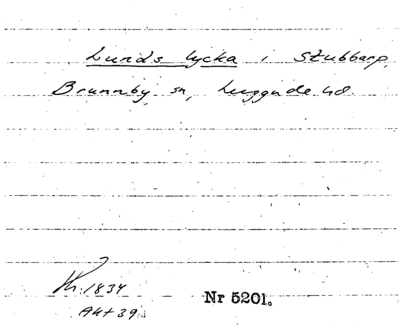 Lunds lycka i Stubbarp,
Brunnby sn, Luggude hd.
Kr. 1834
Akt 39.
Nr 5201.